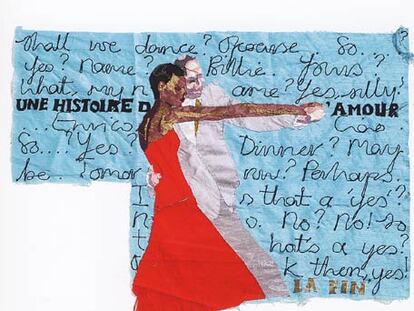 Shall we dance? Ofcourse So..?
Yes? Name? Billie. Yours?
What, my name? Yes, silly!
UNE HISTOIRE D'AMOUR
So...? Yes? Dinner? May
be.. Tomor Perhaps
Is that a 'yes'?
No? No! So
that's a yes?
k then, yes!
LA FIN